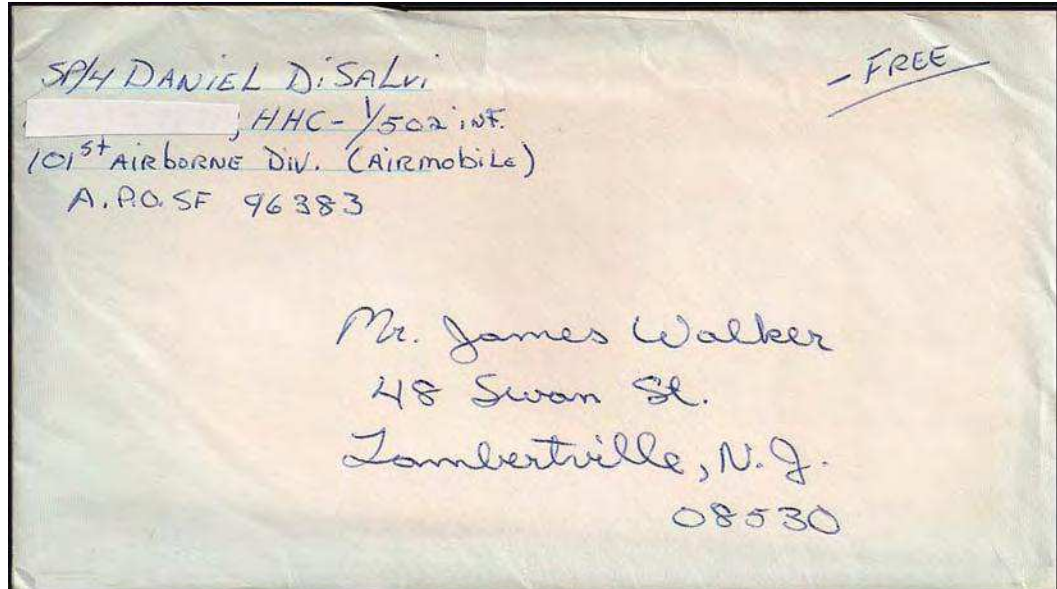 SP/4 DANIEL DiSALVi
- FREE
, HHC - 1/502 iNF.
101st AIRBORNE DIV. (AIRMOBILE)
A.P.O. SF 96383
Mr. James Walker
48 Swan St.
Lambertville, N.J.
08530